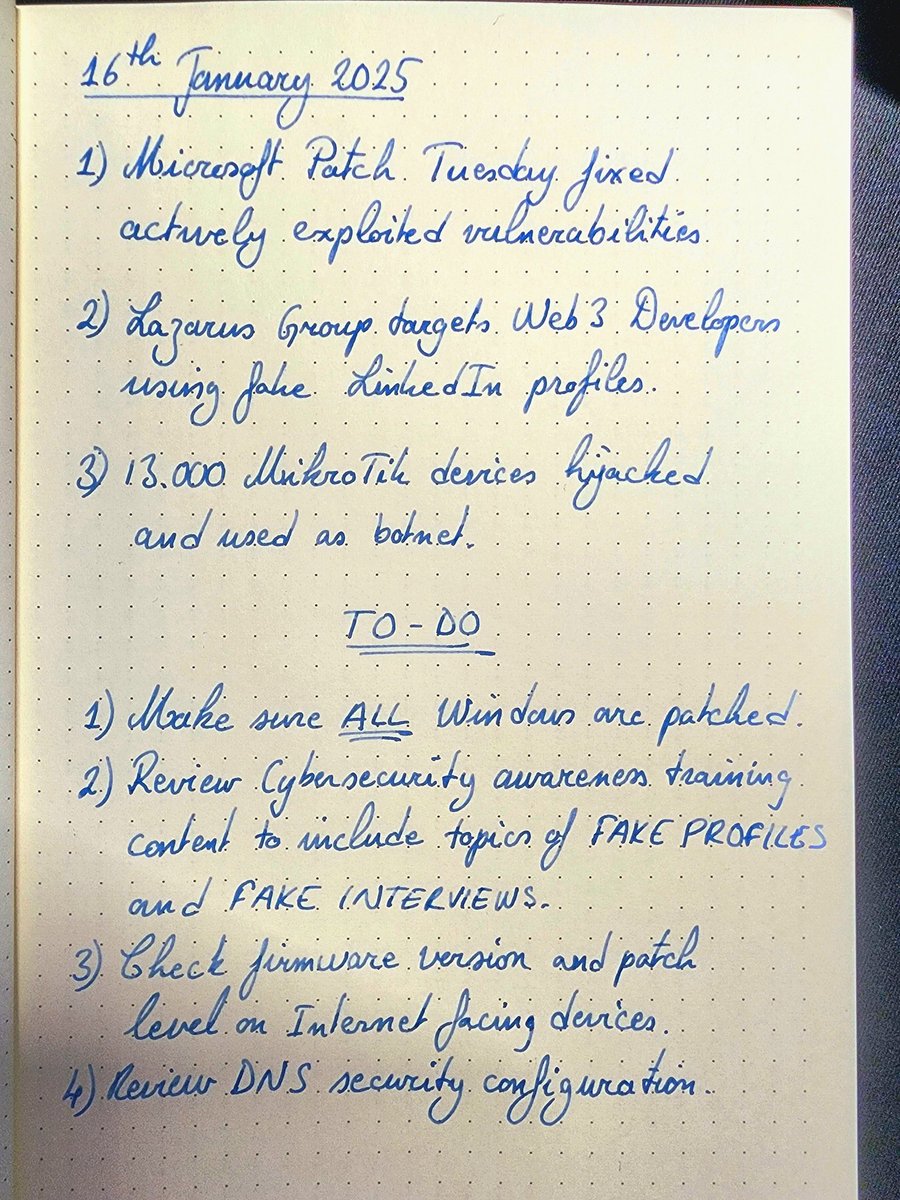 16th January 2025
1) Microsoft Patch Tuesday fixed
actively exploited vulnerabilities.
2) Lazarus Group targets Web3 Developers
using fake LinkedIn profiles.
3) 13.000 MikroTik devices hijacked
and used as botnet.
TO-DO
1) Make sure ALL Windows are patched.
2) Review Cybersecurity awareness training
content to include topics of FAKE PROFILES
and FAKE INTERVIEWS.
3) Check firmware version and patch
level on Internet facing devices.
4) Review DNS security configuration.